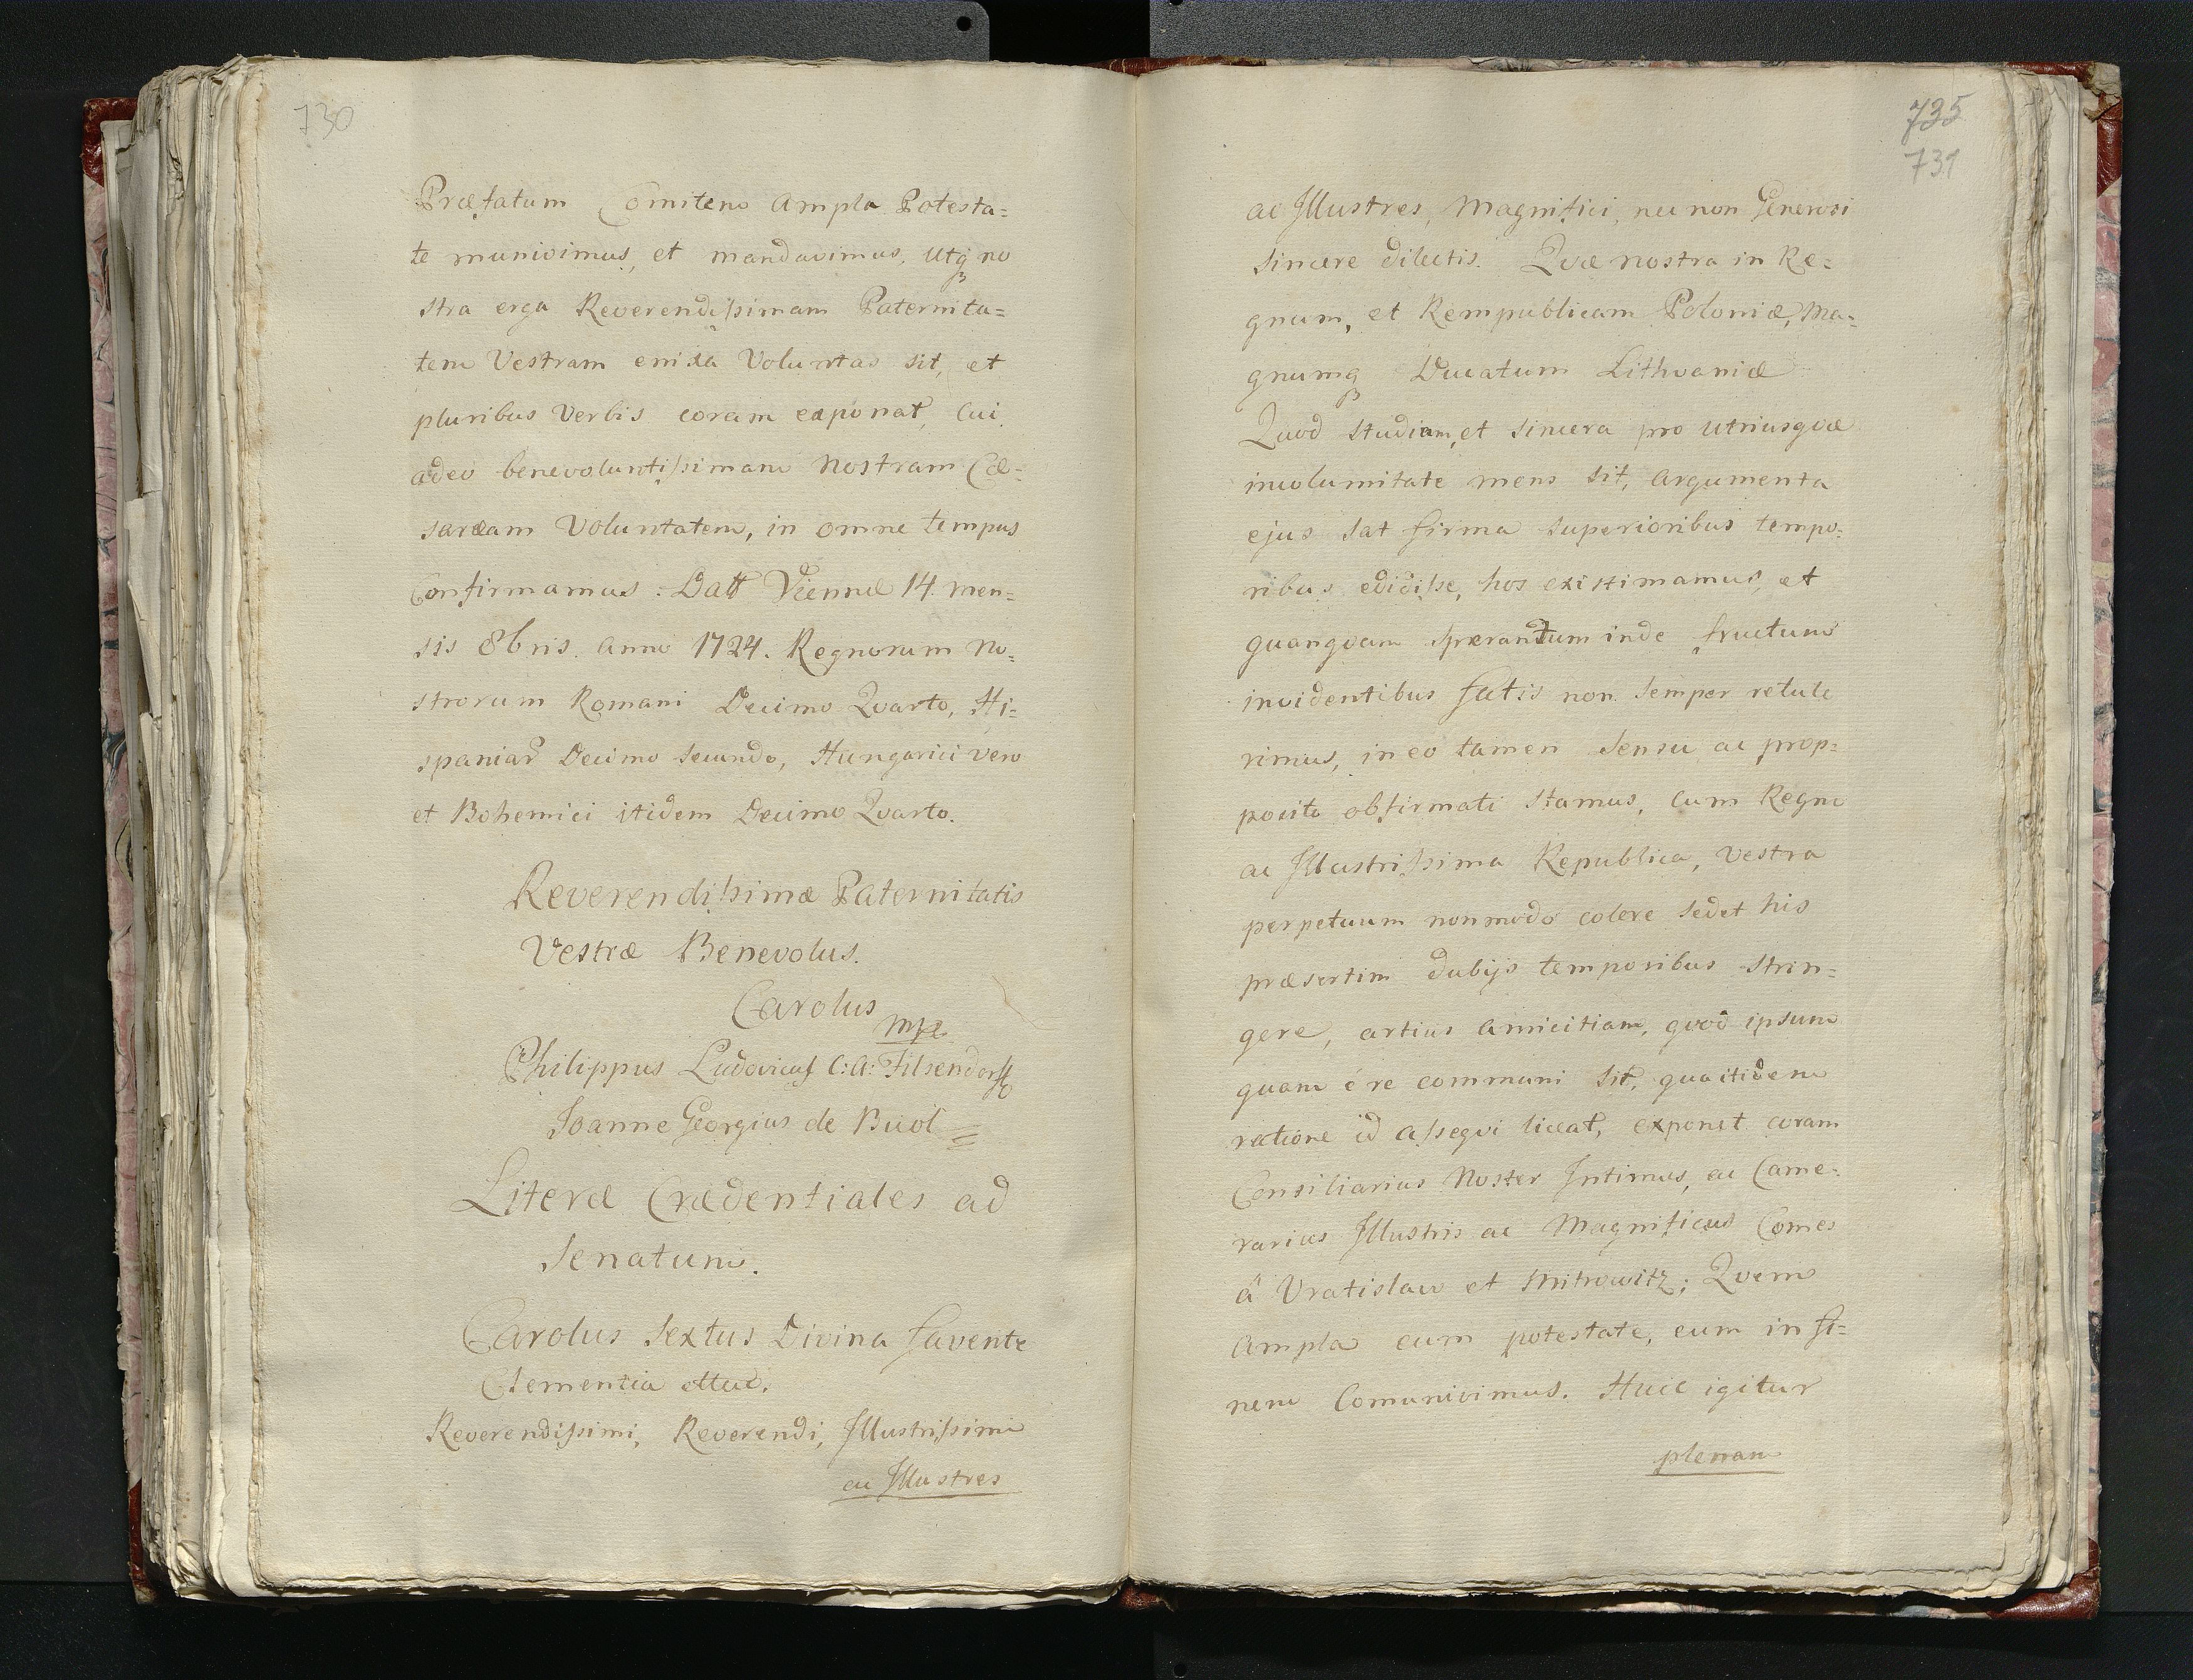 730
Præfatum Comitem ampla Potesta=
te munivimus, et mandavimus, utq no
stra erga Reverendissimam Paternita=
tem Vestram enixa Voluntas sit, et
pluribus Verbis coram exponat, Cui
adeo benevoluntissimam nostram Cæ=
saræam Voluntatem, in omne tempus
Confirmamus. Datt Viennæ 14. men=
sis 8bris. anno 1724. Regnorum no=
strorum Romani Decimo Qvarto, Hi=
spaniar Decimo Secundo, Hungarici vero
et Bohemici itidem Decimo Qvarto.
Reverendissimæ Paternitatis
Vestræ Benevolus.
Carolus
mpr
Philippus Ludovicus C: a: Filsendorff
Joanne Georgius de Buol
Literæ Crædentiales ad
Senatum.
Carolus Sextus Divina favente
Clementia ettuc.
Reverendissimi, Reverendi, Illustrissimi
ac Illustres
735
731
ac Illustres, Magnifici, nec non Generosi
Sincere dilectis. Qvæ nostra in Re=
gnum, et Rempublicam Poloniæ, Ma=
gnumq Ducatum Lithvaniæ
Quod studium, et sincera pro utriusqvæ
incolumitate mens sit, argumenta
ejus sat firma superioribus tempo=
ribus edidisse, hos existimamus, et
quanqvam sperandum inde fructum
invidentibus fatis non semper retule
rimus, in eo tamen sensu ac prop=
posito obfirmati stamus, Cum Regno
ac Illustrissima Republica, Vestra
perpetuum non modo colere sedet his
præsertim dubijs temporibus strin=
gere, artius amicitiam, qvod ipsum
quam é re communi sit, qua itidem
rectione id assegvi liceat, exponet coram
Consiliarius Noster Intimus, ac Came=
rarius Illustris ac Magnificus Comes
â Vratislau et Mitrowitz; Qvem
ampla cum potestate, eum in fi=
nem Comunivimus. Huic igitur
plenam